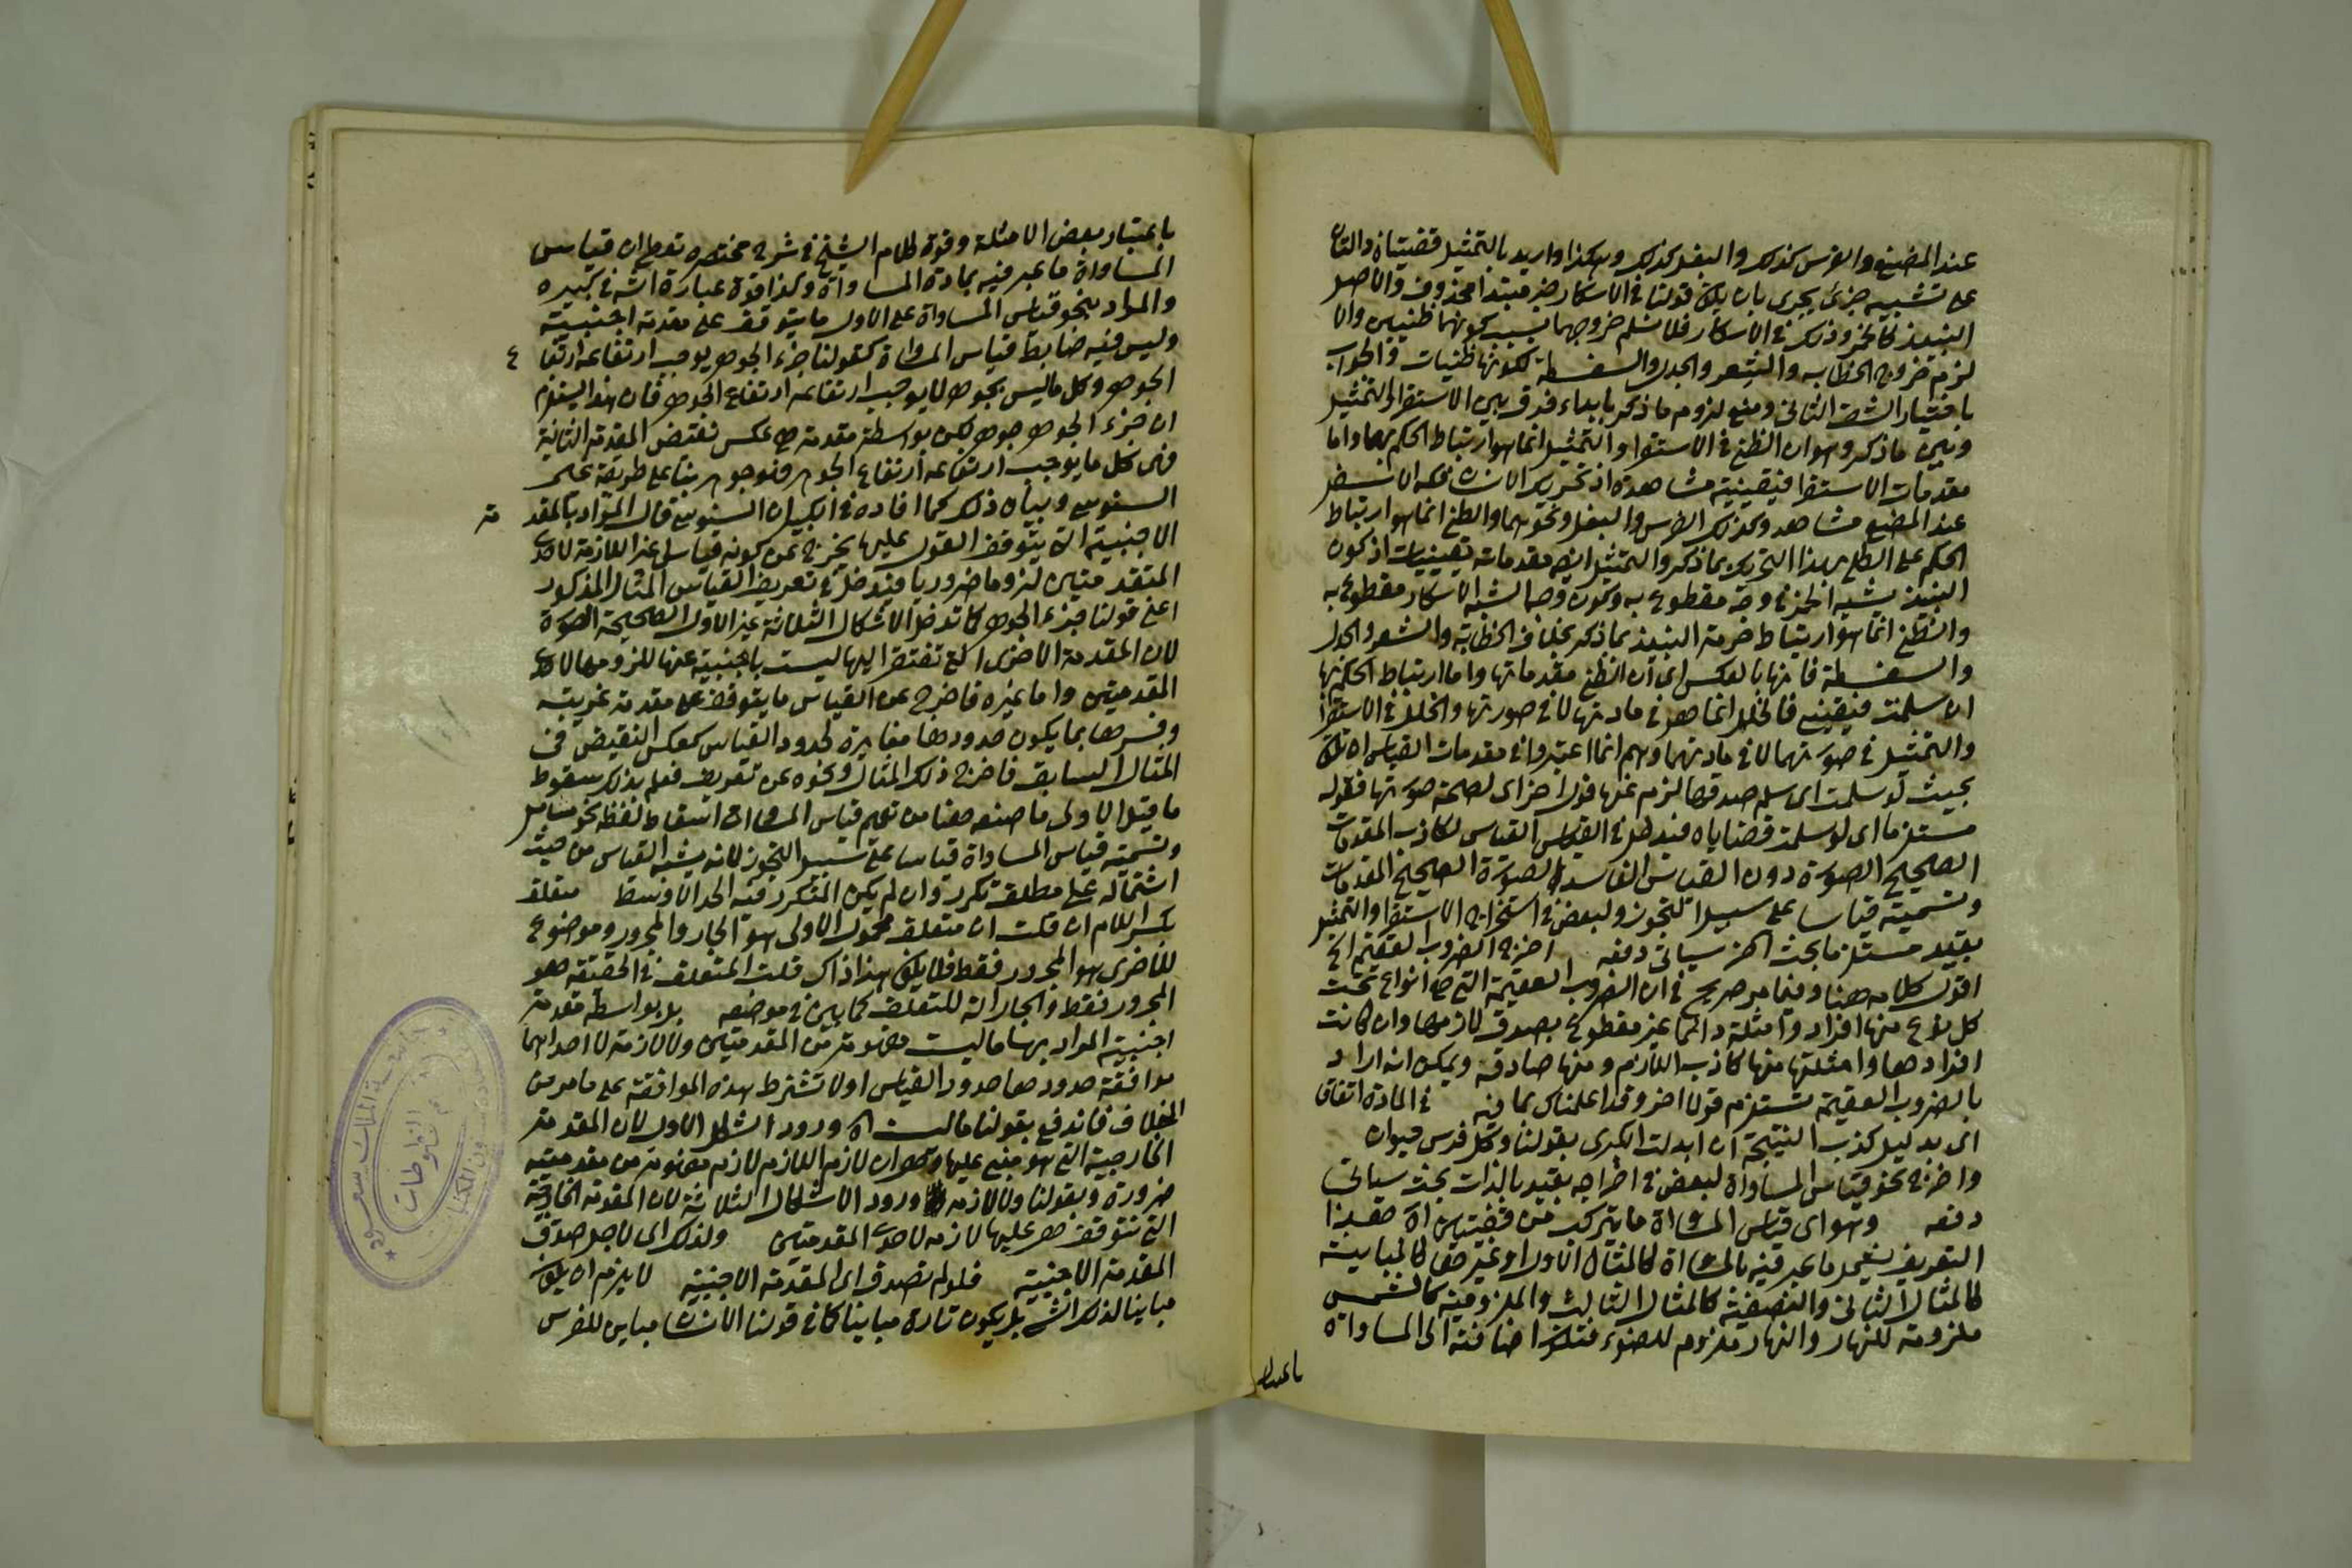 عند المضغ والفرس كذلك والبغل كذلك وهكذا واريد بالتمثيل قضيتان دالتان
على تشبيه جزئ بجزئ بان يكون قولنا في الاسكار خبر مبتدا محذوف والاصل
النبيذ كالخمر وذلك في الاسكار فلا نسلم خروجهما بسبب كونهما ظنيين والا
لزم خروج الخطابه والشعر والجدل والسفسطة لكونها ظنيات والجواب
باختيار الشق الثانى ومنع لزوم ما ذكر بابداء فرق بين الاستقرا والتمثيل
وبين ماذكر وهو ان الظن في الاستقرا والتمثيل انما هو ارتباط الحكم بهما واما
مقدمات الاستقرا فيقينية مشاهدة اذ تحريك الانسان فكه الاسفل
عند المضغ مشاهد وكذلك الفرس والبغل ونحوهما والظن انما هو ارتباط
الحكم على الكلى بهذا التحريك بما ذكر والتمثيل ايضا مقدماته يقينيات اذ كون
النبيذ يشبه الخمر في وصف مقطوع به وكون وجه الشبه الاسكار مقطوع به
والظن انما هو ارتباط حرمة النبيذ بما ذكر بخلاف الخطابة والشعر والجدل
والسفسطة فانها بالعكس اى ان الظن مقدماتها واما ارتباط الحكم بها
ان سلمت فيقينى فالخلل انما هو في مادتها لا في صورتها والخلل في الاستقرا
والتمثيل في صورتهما لا في مادتهما وهم انما اعتبروا في مقدمات القياس ان تكون
بحيث لو سلمت اى سلم صدقها لزم عنها قول اخر اى لصحة صورتها فقوله
مستلزما اى لو سلمت قضاياه فيدخل في القياس القياس الكاذب المقدمات
الصحيح الصورة دون القياس الفاسد الصورة الصحيح المقدمات
وتسميته قياسا على سبيل التجوز ولبعض في استخراج الاستقرا والتمثيل
بقيد مستلزما بحث اخر سياتى دفعه اخرج الضروب العقيم الخ
اقول كلامه هنا وفيما مر صريح في ان الضروب العقيمة التى هي انواع تحت
كل نوع منها افراد وامثلة دائما غير مقطوع بصدق لازمها وان كانت
افرادها وامثلتها منها كاذب اللازم ومنها صادقه ويمكن انه اراد
بالضروب العقيمة تستلزم قولا اخر وقد اعلمناك بما فيه في المادة اتفاق
اى بدليل كذب النتيجة ان ابدلت الكبرى بقولنا وكل فرس حيوان
واخرج نحو قياس المساواة لبعض في اخراجه بقيد بالذات بحث سياتى
دفعه وهو اى قياس المساواة ما يتركب من قضيتين اه هذا
التعريف يشمل ما عبر فيه بالمساواة كالمثال الاول او غيرها كالمباينة
كالمثال الثانى والنصفية كالمثال الثالث والملزومية كالشمس
ملزومة للنهار والنهار ملزوم للضوء فتكون اضافته الى المساواة
باعتبار
باعتبار بعض الامثلة وقوة كلام الشيخ في شرح مختصره تعطى ان قياس
المساواة ما عبر فيه بمادة المساواة وكذا قوة عبارة الش في كبيره
والمراد بنحو قياس المساواة على الاول ما يتوقف على مقدمة اجنبية
وليس فيه ضابط قياس المساواة كقولنا جزء الجوهر يوجب ارتفاعه ارتفا ع
الجوهر وكل ما ليس بجوهر لا يوجب ارتفاعه ارتفاع الجوهر فان هذا يستلزم
ان جزء الجوهر جوهر لكن بواسطة مقدمة هي عكس نقيض المقدمة الثانية
فهى كل ما يوجب ارتفاعه ارتفاع الجوهر فهو جوهر بناء على طريقة على
السنوسى وبيان ذلك كما افاده في الكبير ان السنوسى قال المراد بالمقد مة
الاجنبية ان يتوقف القول عليها يخرج عن كونه قياسا غير اللازمة لاحدى
المقدمتين لزوما ضروريا فيدخل في تعريف القياس المثال المذكور
اعنى قولنا جزء الجوهر كما تدخل الاشكال الثلاثة غير الاول الصحيحة الصورة
لان المقدمة الاخرى التى تفتقر اليها ليست باجنبية عنها للزومها لاحدى
المقدمتين واما غيره فاخرج عن القياس ما يتوقف على مقدمة غريبة
وفسرها بما يكون حدودها مغايرة لحدود القياس كعكس النقيض في
المثال السابق فاخرج ذلك المثال ونحوه عن تعريف فعلم بذلك سقوط
ما قيل الاولى ما صنعه هنا من تعميم قياس المساواة اسقاط لفظه نحو تامل
وتسمية قياس المساواة قياسا على سبيل التجوز لانه يشبه القياس من حيث
اشتماله على مطلق تكرر وان لم يكن المتكرر فيه الحد الاوسط متعلق
بكسر اللام ان قلت ان متعلق محمول الاولى هو الجار والمجرور وموضوع
للاخرى هو المجرور فقط فلا يكون هذا ذاك قلت المتعلق في الحقيقة هو
المجرور فقط والجار الة للتعلق كما بين في موضعه بل بواسطة مقدمة
اجنبية المراد بها ما ليست مفهومة من المقدمتين ولا لازمة لاحداهما
موافقة حدودها حدود القياس اولا تشترط هذه الموافقة على ما مر من
الخلاف فاندفع بقولنا ما ليست اه ورود الشكل الاول لان المقدمة
الخارجية التى هو مبنى عليها وهو ان لازم اللازم لازم مفهومة من مقدمتيه
ضرورة وبقولنا ولا لازمة ورود الاشكال الثلاثة لان المقدمة الخارجية
التى تتوقف هى عليها لازمه لاحدى المقدمتين ولذلك اى لاجل صدق
المقدمة الاجنبية فلو لم تصدق اى المقدمة الاجنبية لا يلزم ان يكون
مباينا لذلك الشئ بل يكون تارة مباينا كما في قولنا الانسان مباين للفرس